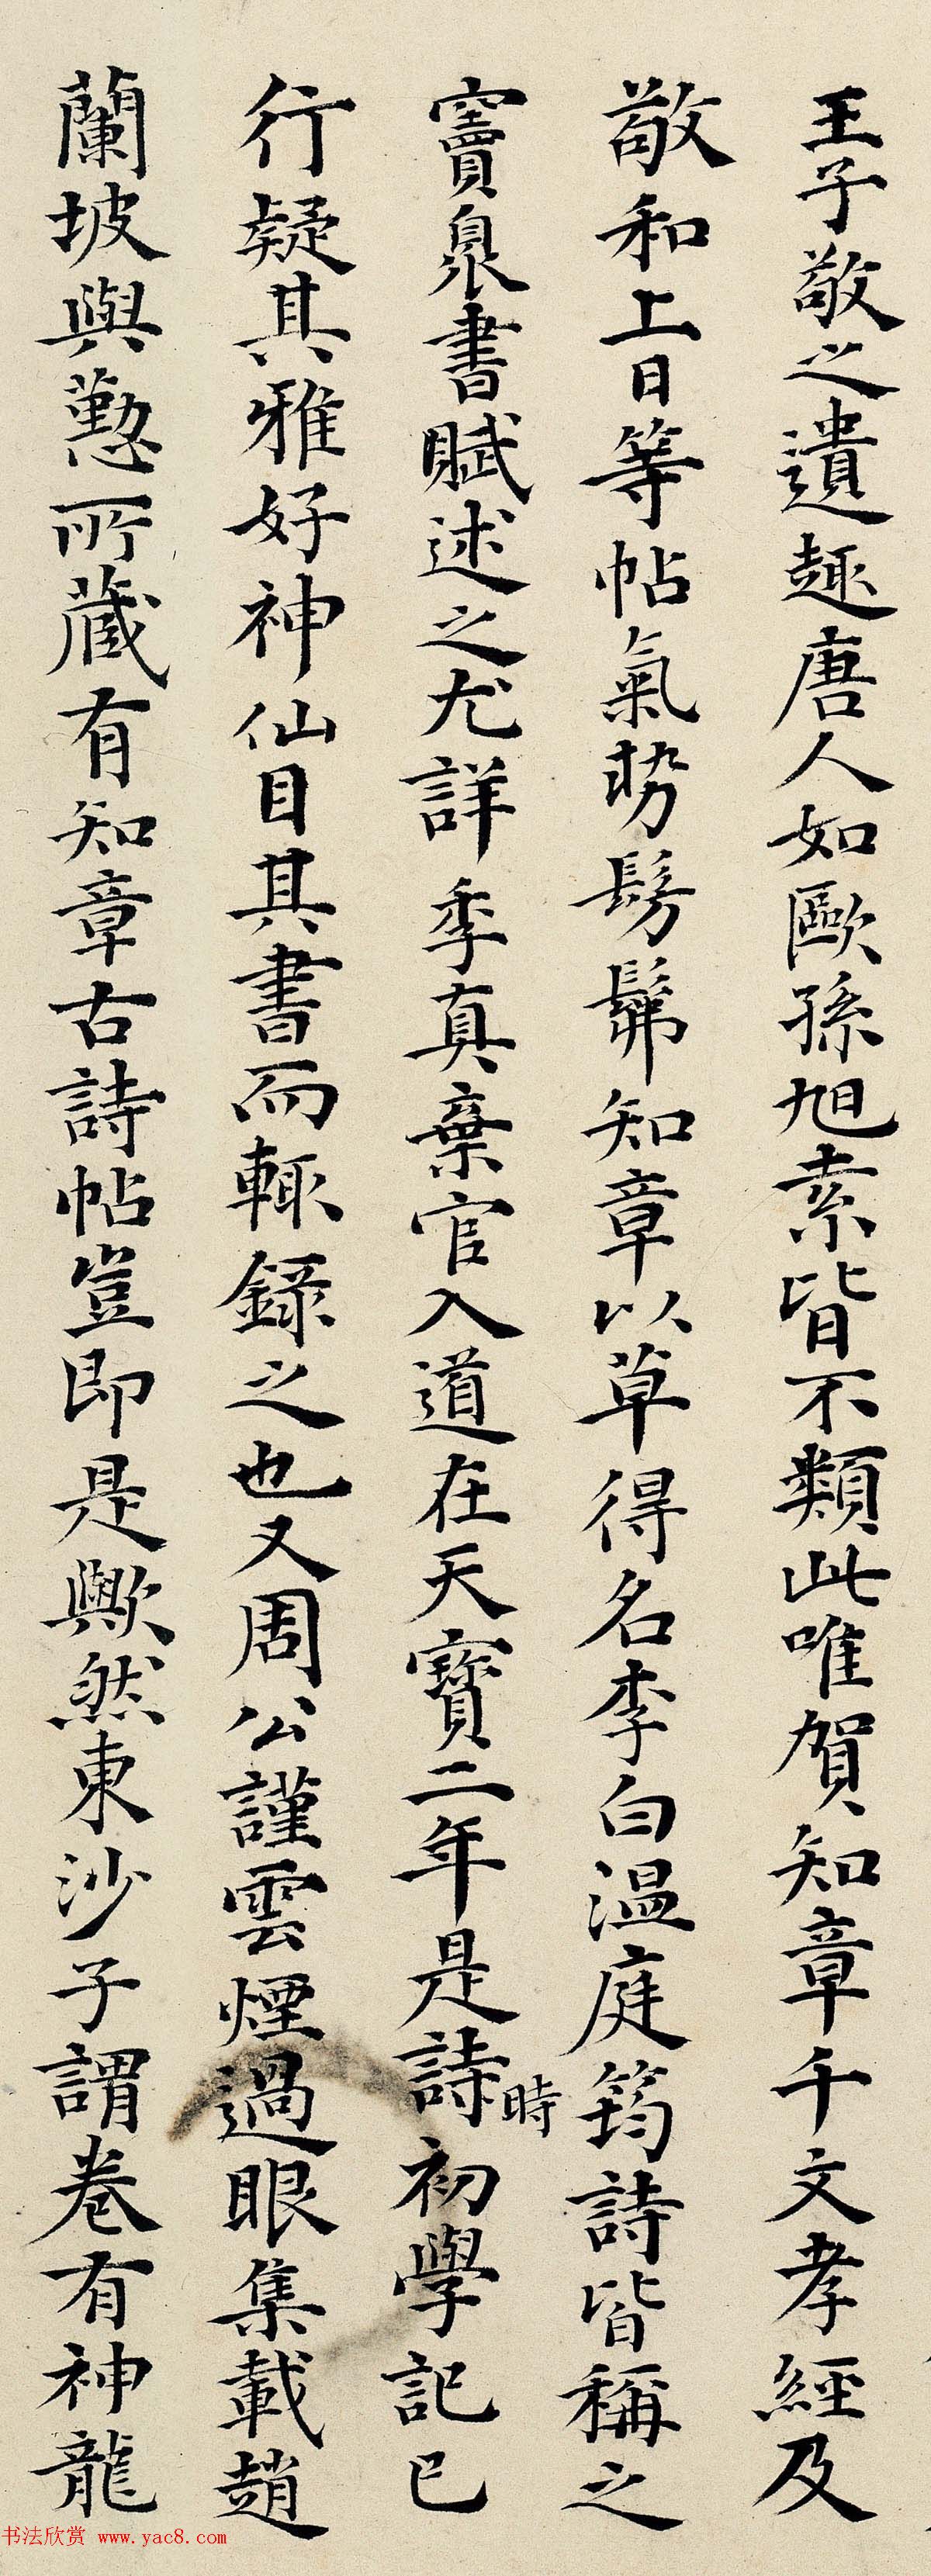 王子敬之遺趣唐人如歐孫旭素皆不類此唯賀知章千文孝經及
敬和上日等帖氣勢髣髴知章以草得名李白温庭筠詩皆稱之
竇臮書賦述之尤詳季真棄官入道在天寳二年是詩時初學記已
行疑其雅好神仙目其書而輙錄之也又周公謹雲煙過眼集載趙
蘭坡與懃所藏有知章古詩帖豈即是歟然東沙子謂卷有神龍
书法欣赏 www.yac8.com